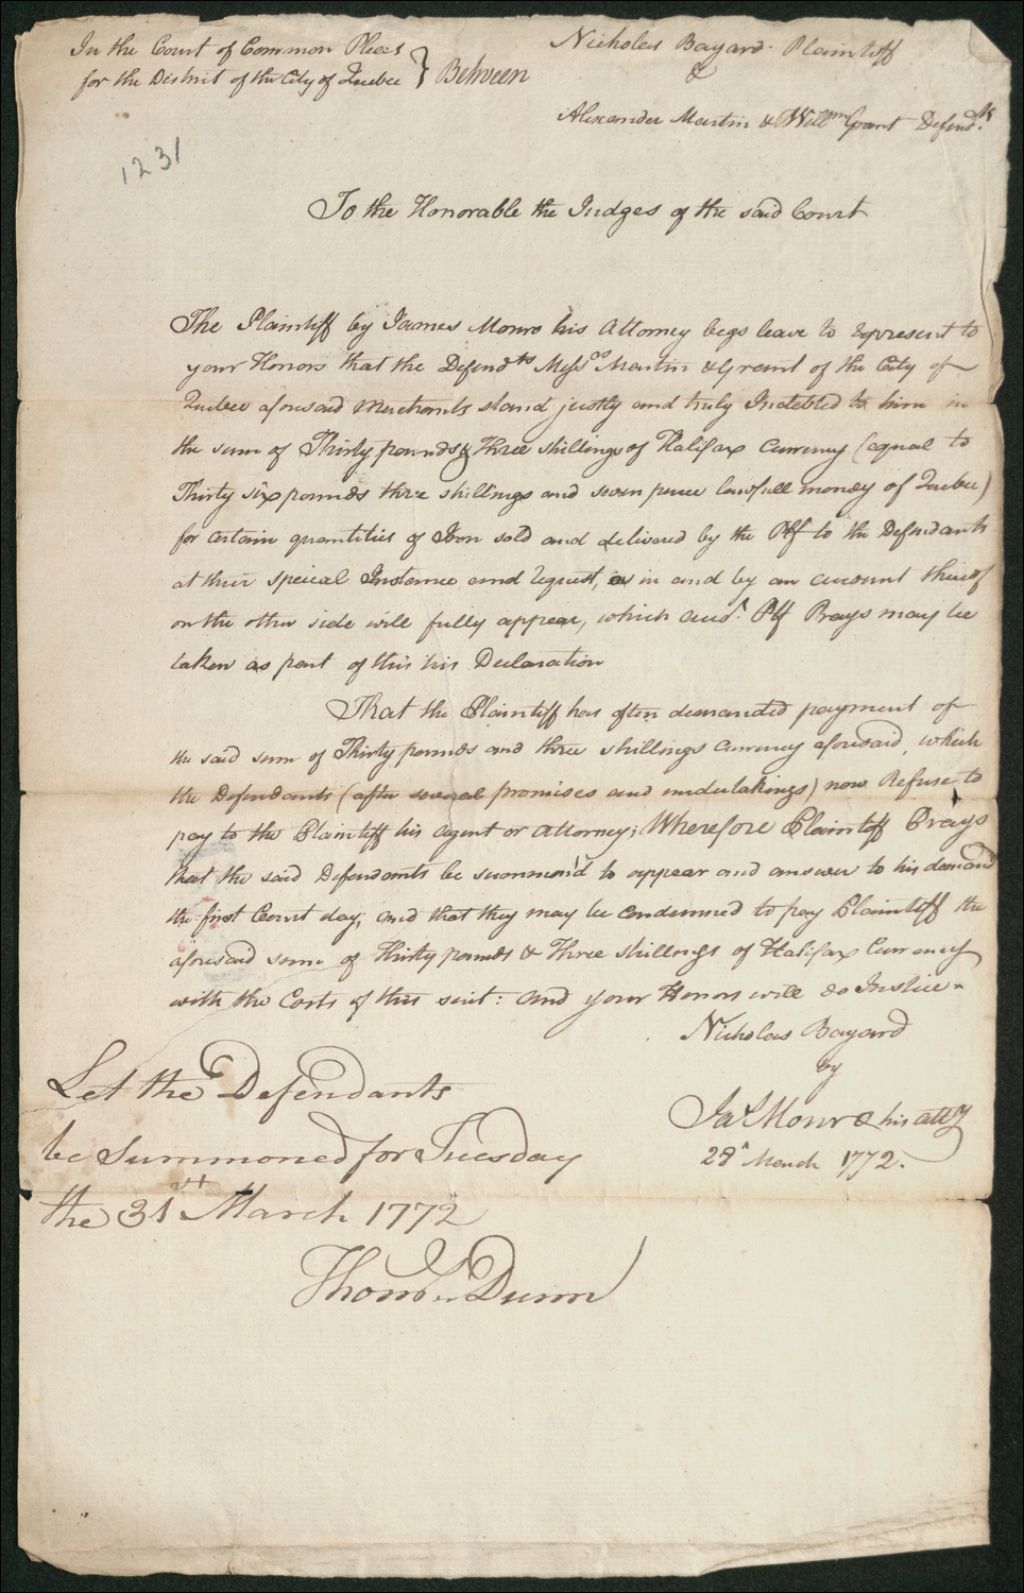 In the Court of Common Pleas
for the District of the City of Quebec } Between
Nicholas Bayard Plaintiff
&
Alexander Martin & Will.m Grant Defend.ts
1231
To the Honorable the Judges of the said Court
The Plaintiff by James Monro his Attorney begs leave to represent to
your Honors that the Defend.ts Mess.rs Martin & Grant of the City of
Quebec aforesaid Merchants stand justly and truly Indebted to him in
the sum of Thirty pounds & Three shillings of Halifax Currency (equal to
Thirty six pounds three shillings and seven pence lawfull money of Quebec)
for certain quantities of Iron sold and delivered by the Plf to the Defendants
at their special Instance and request, as in and by an account thereof
on the other side will fully appear, which acco.t Plf Prays may be
taken as part of this his Declaration
That the Plaintiff has often demanded payment of
the said sum of Thirty pounds and three shillings currency aforesaid, which
the Defendants (after several promises and undertakings) now Refuse to
pay to the Plaintiff his agent or attorney; Wherefore Plaintiff Prays
that the said Defendants be summon'd to appear and answer to his demand
the first Court day, and that they may be condemned to pay Plaintiff the
aforesaid sum of Thirty pounds & Three shillings of Halifax Currency
with the Costs of this suit: and your Honors will do Justice
Nicholas Bayard
by
Ja.s Monro his atty
28th March 1772.
Let the Defendants
be Summoned for Tuesday
the 31st March 1772
Thom.s Dunn